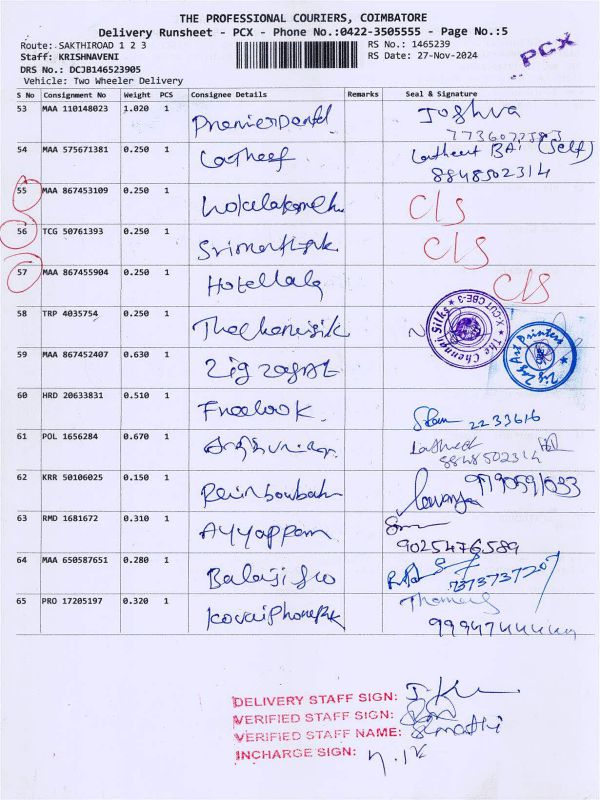 THE PROFESSIONAL COURIERS, COIMBATORE
Delivery Runsheet - PCX - Phone No.:0422-3505555 - Page No.:5
Route: SAKTHIROAD 1 2 3 RS No.: 1465239
Staff: KRISHNAVENI RS Date: 27-Nov-2024
DRS No.: DCJB146523905
Vehicle: Two Wheeler Delivery
PCX
S No Consignment No Weight PCS Consignee Details Remarks Seal & Signature
53 MAA 110148023 1.020 1 Premier Dental Joshva
54 MAA 575671381 0.250 1 Latheef Latheef BAI (Self)
8848502314
55 MAA 867453109 0.250 1 C/S
56 TCG 50761393 0.250 1 C/S
57 MAA 867455904 0.250 1 C/S
58 TRP 4035754 0.250 1
The Chennai Silks
X-CUT CBE-3
59 MAA 867452407 0.630 1 Zig zag Art
Zig Zag Art Printers
60 HRD 20633831 0.510 1 Free look 2233616
61 POL 1656284 0.670 1 Latheef
8848502314
62 KRR 50106025 0.150 1 Lavanya
63 RMD 1681672 0.310 1 Ayyappan
9025476589
64 MAA 650587651 0.280 1 Balaji 7373737207
65 PRO 17205197 0.320 1 Thomas
DELIVERY STAFF SIGN:
VERIFIED STAFF SIGN:
VERIFIED STAFF NAME: Sumathi
INCHARGE SIGN: